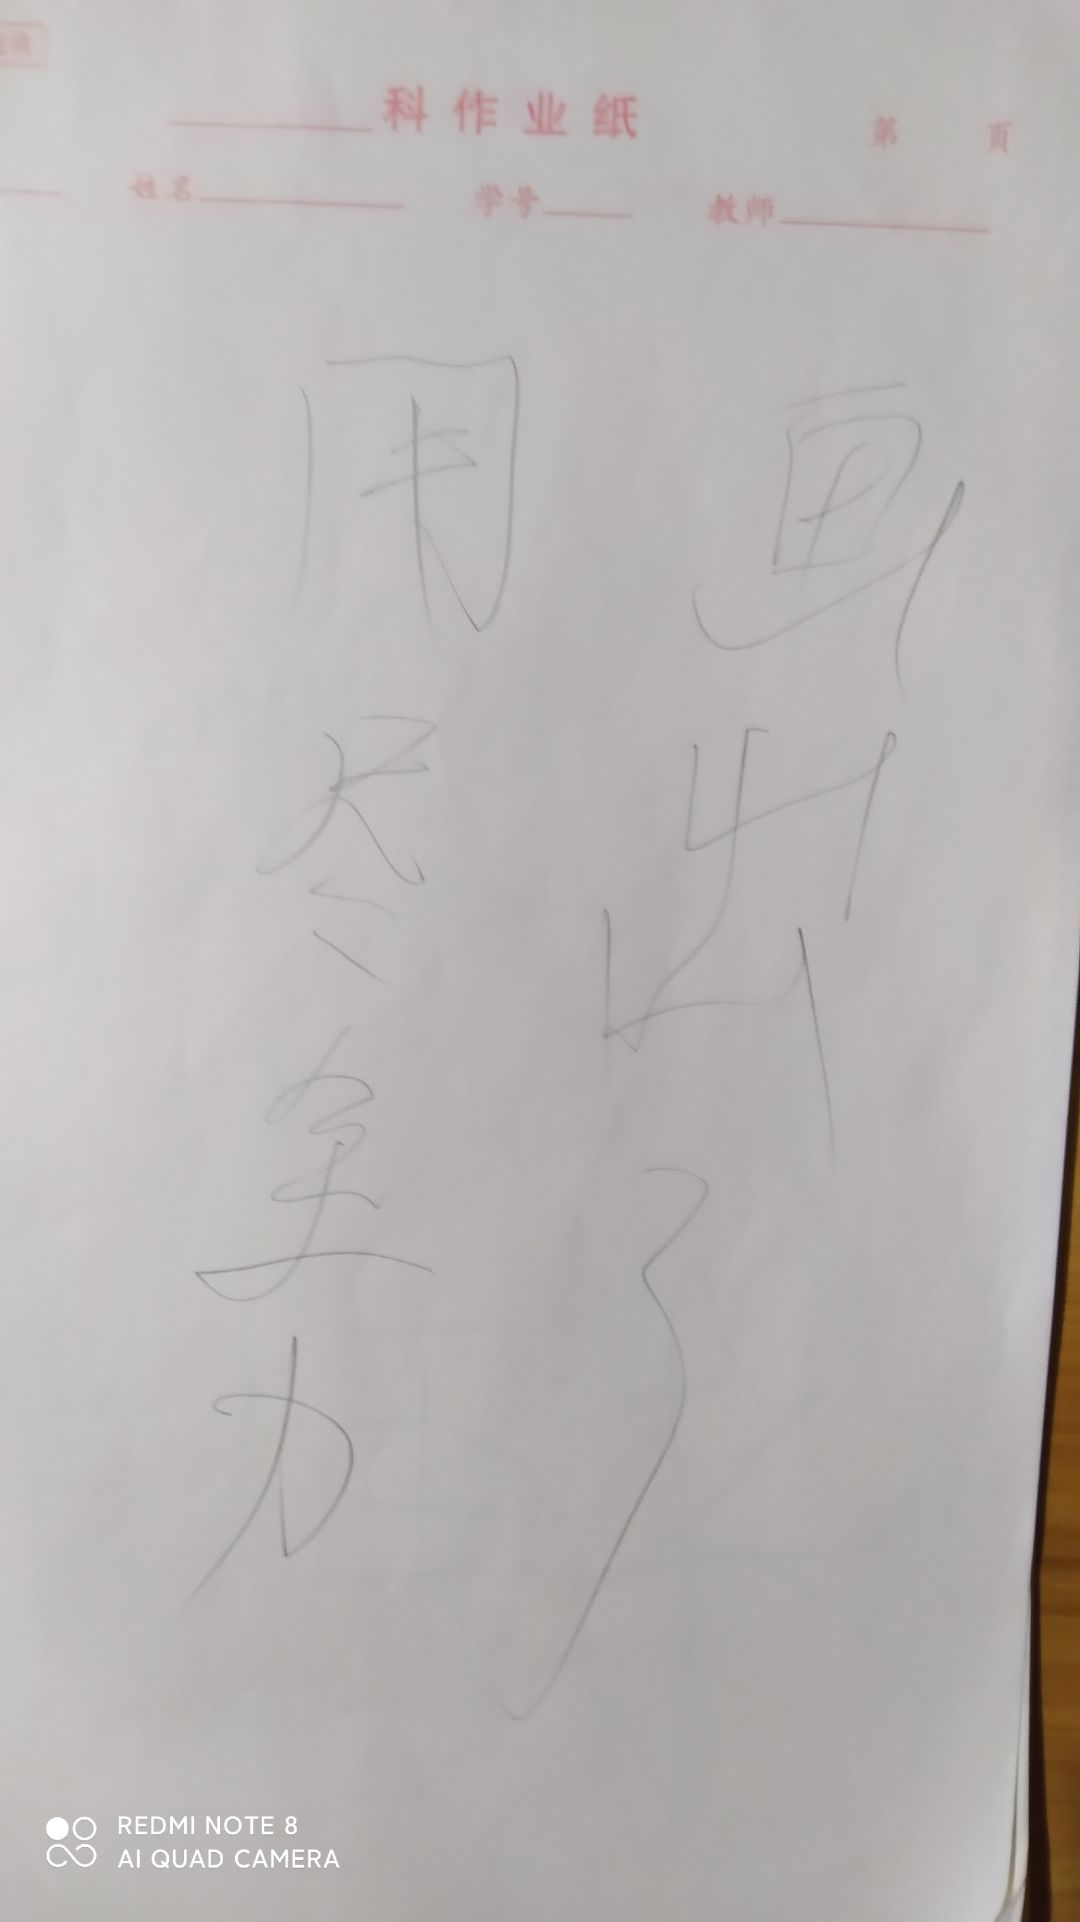 科作业纸
第 页
姓名 学号 教师
用尽全力
画出了
REDMI NOTE 8
AI QUAD CAMERA